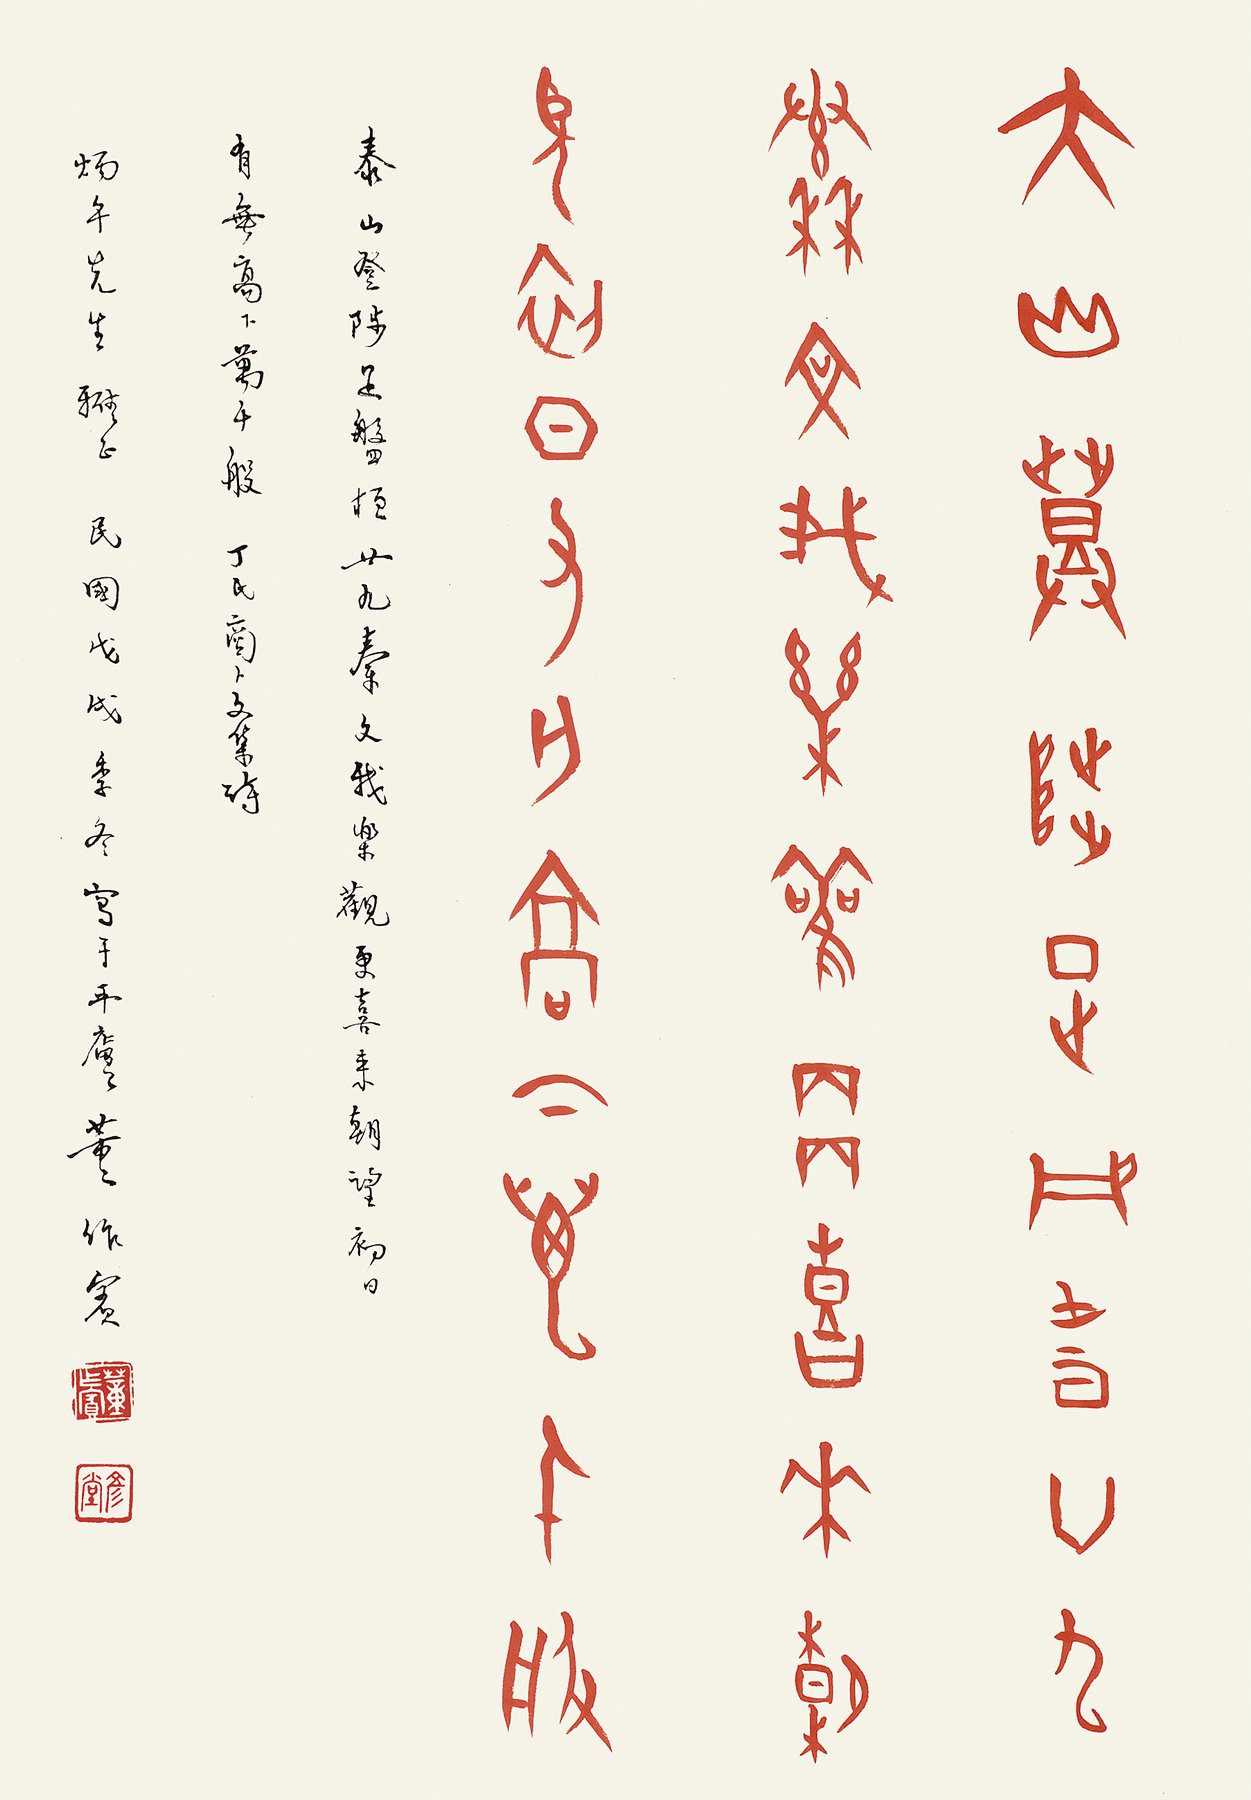 大山登陟足盤桓廿九
秦文我樂觀更喜來朝
望初日有無高下萬千般
泰山登陟足盤桓廿九秦文我樂觀更喜來朝望初日
有無高下萬千般 丁氏商卜文集詩
炳午先生雅正 民國戊戌季冬寫于平廬 董作賓
董作賓
彥堂